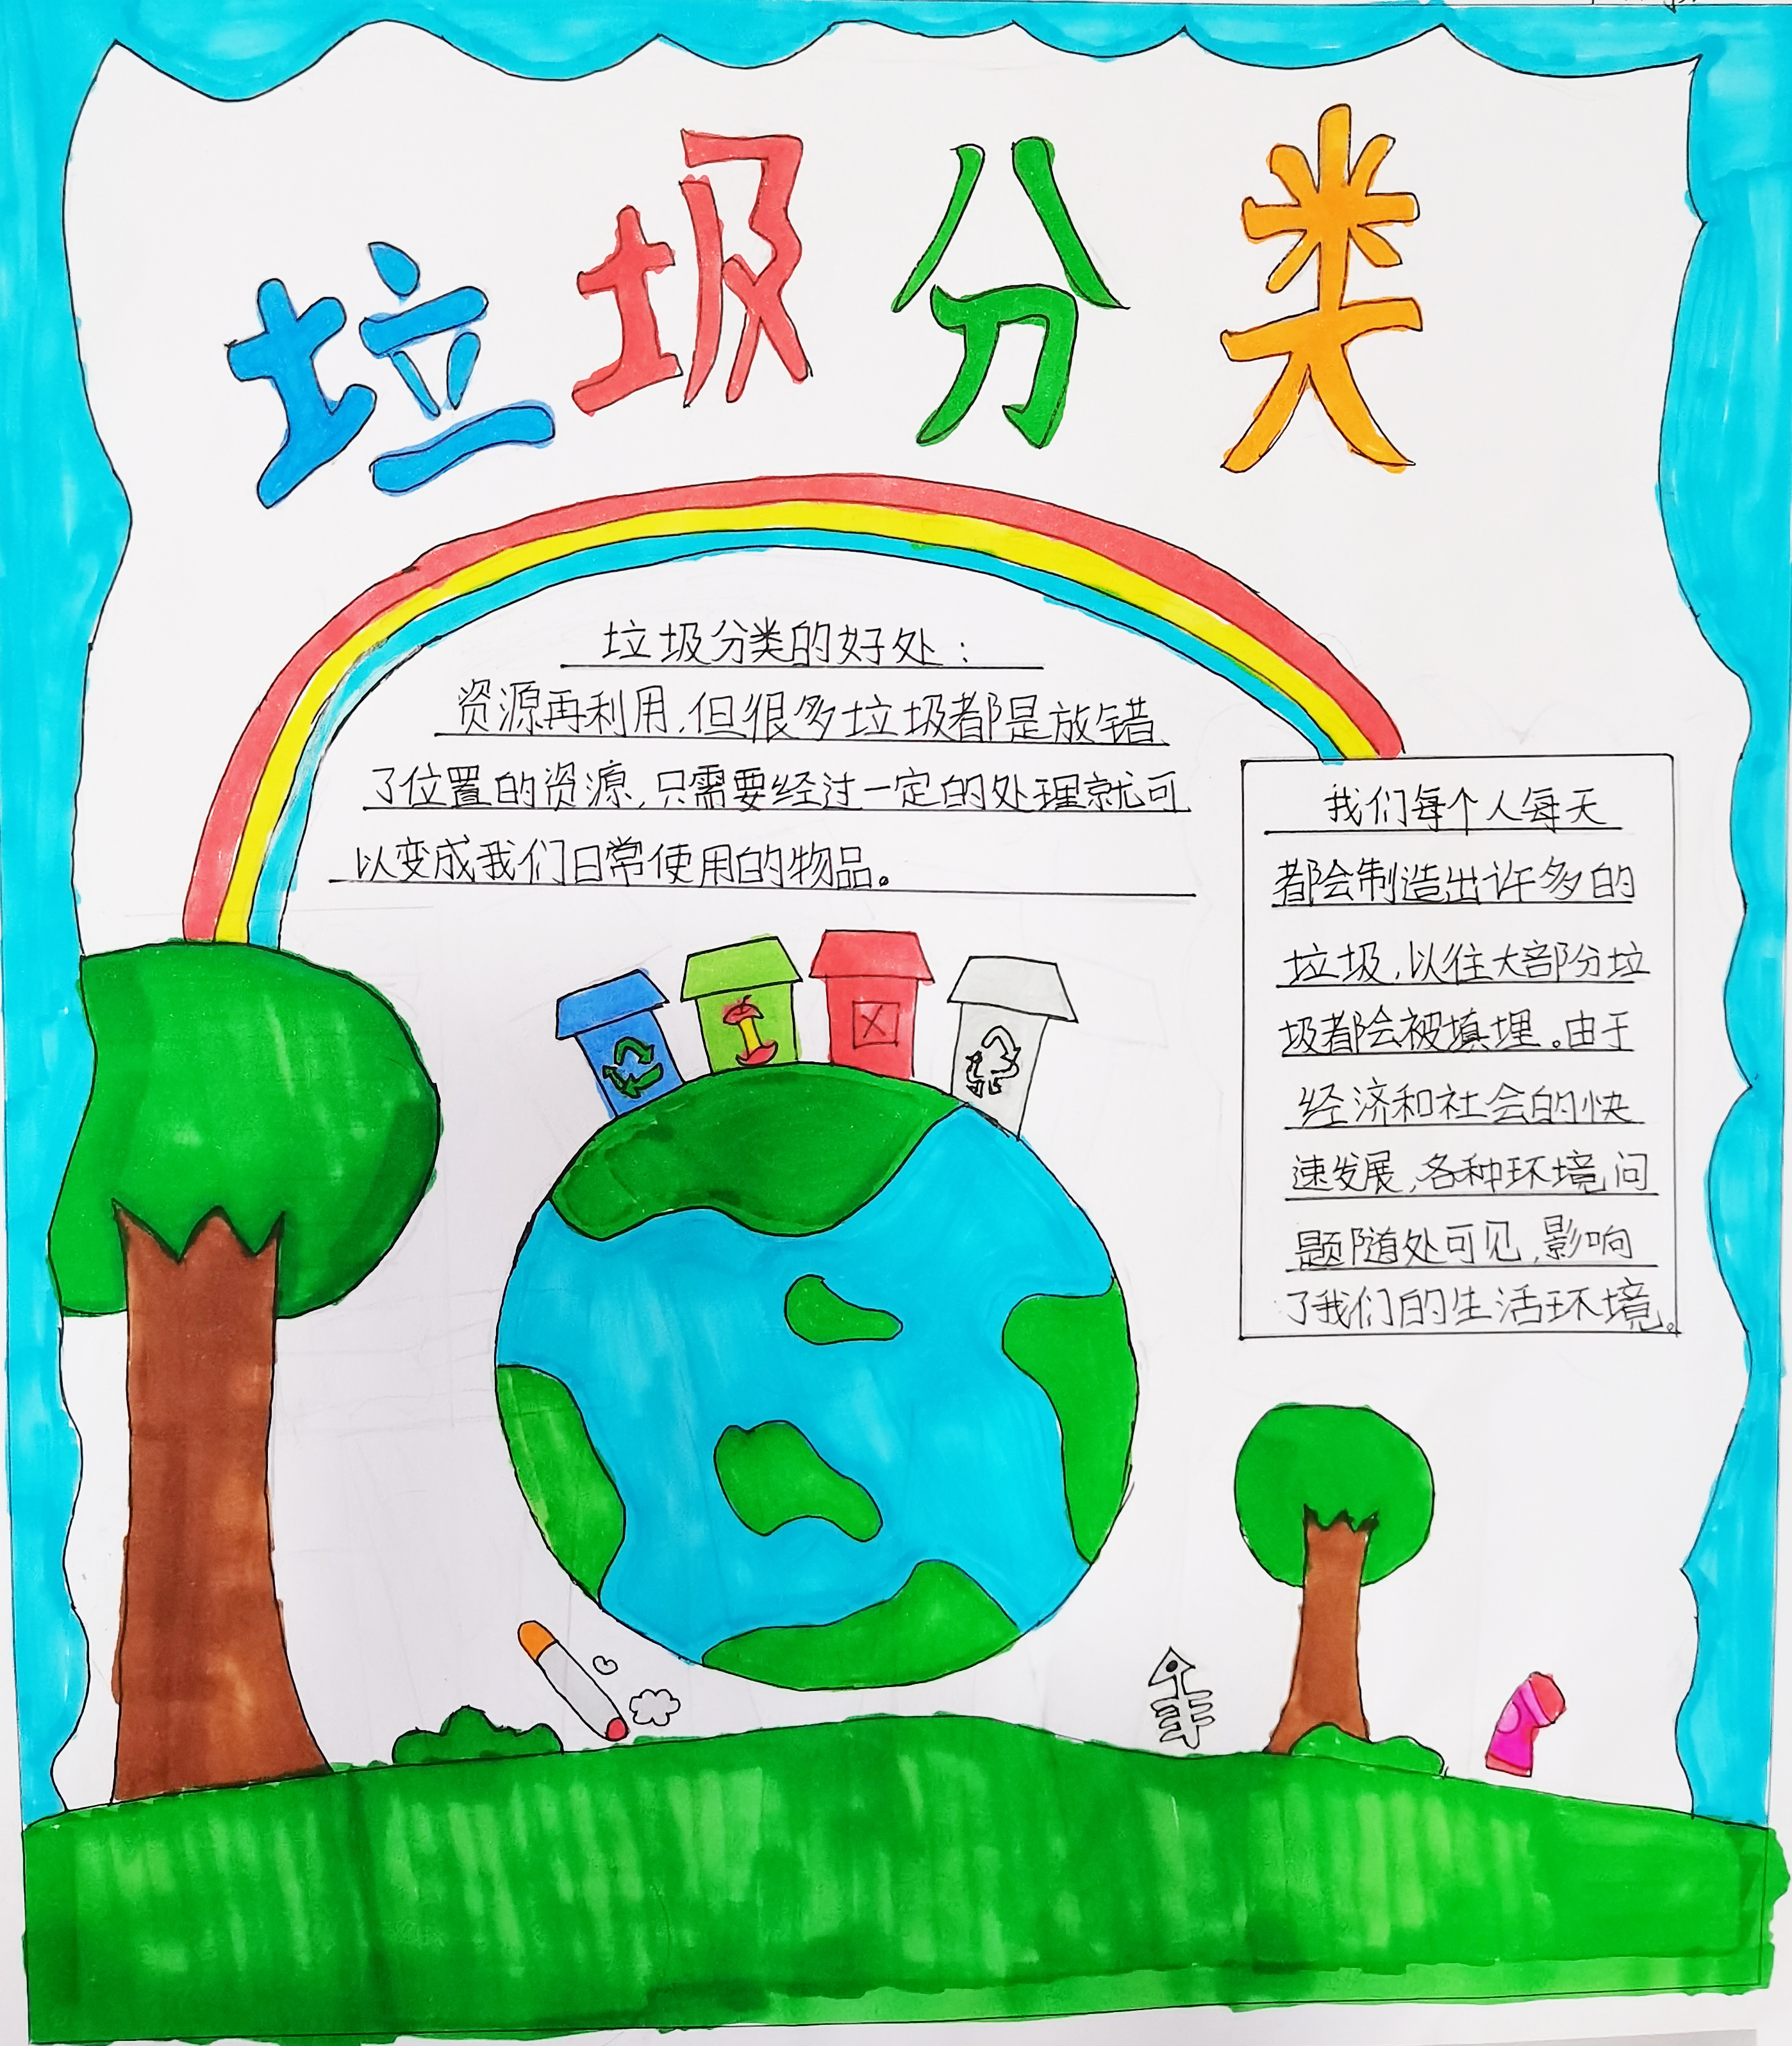 垃圾分类
垃圾分类的好处：
资源再利用,但很多垃圾都是放错
了位置的资源,只需要经过一定的处理就可
以变成我们日常使用的物品。
我们每个人每天
都会制造出许多的
垃圾,以往大部分垃
圾都会被填埋。由于
经济和社会的快
速发展,各种环境问
题随处可见,影响
了我们的生活环境。